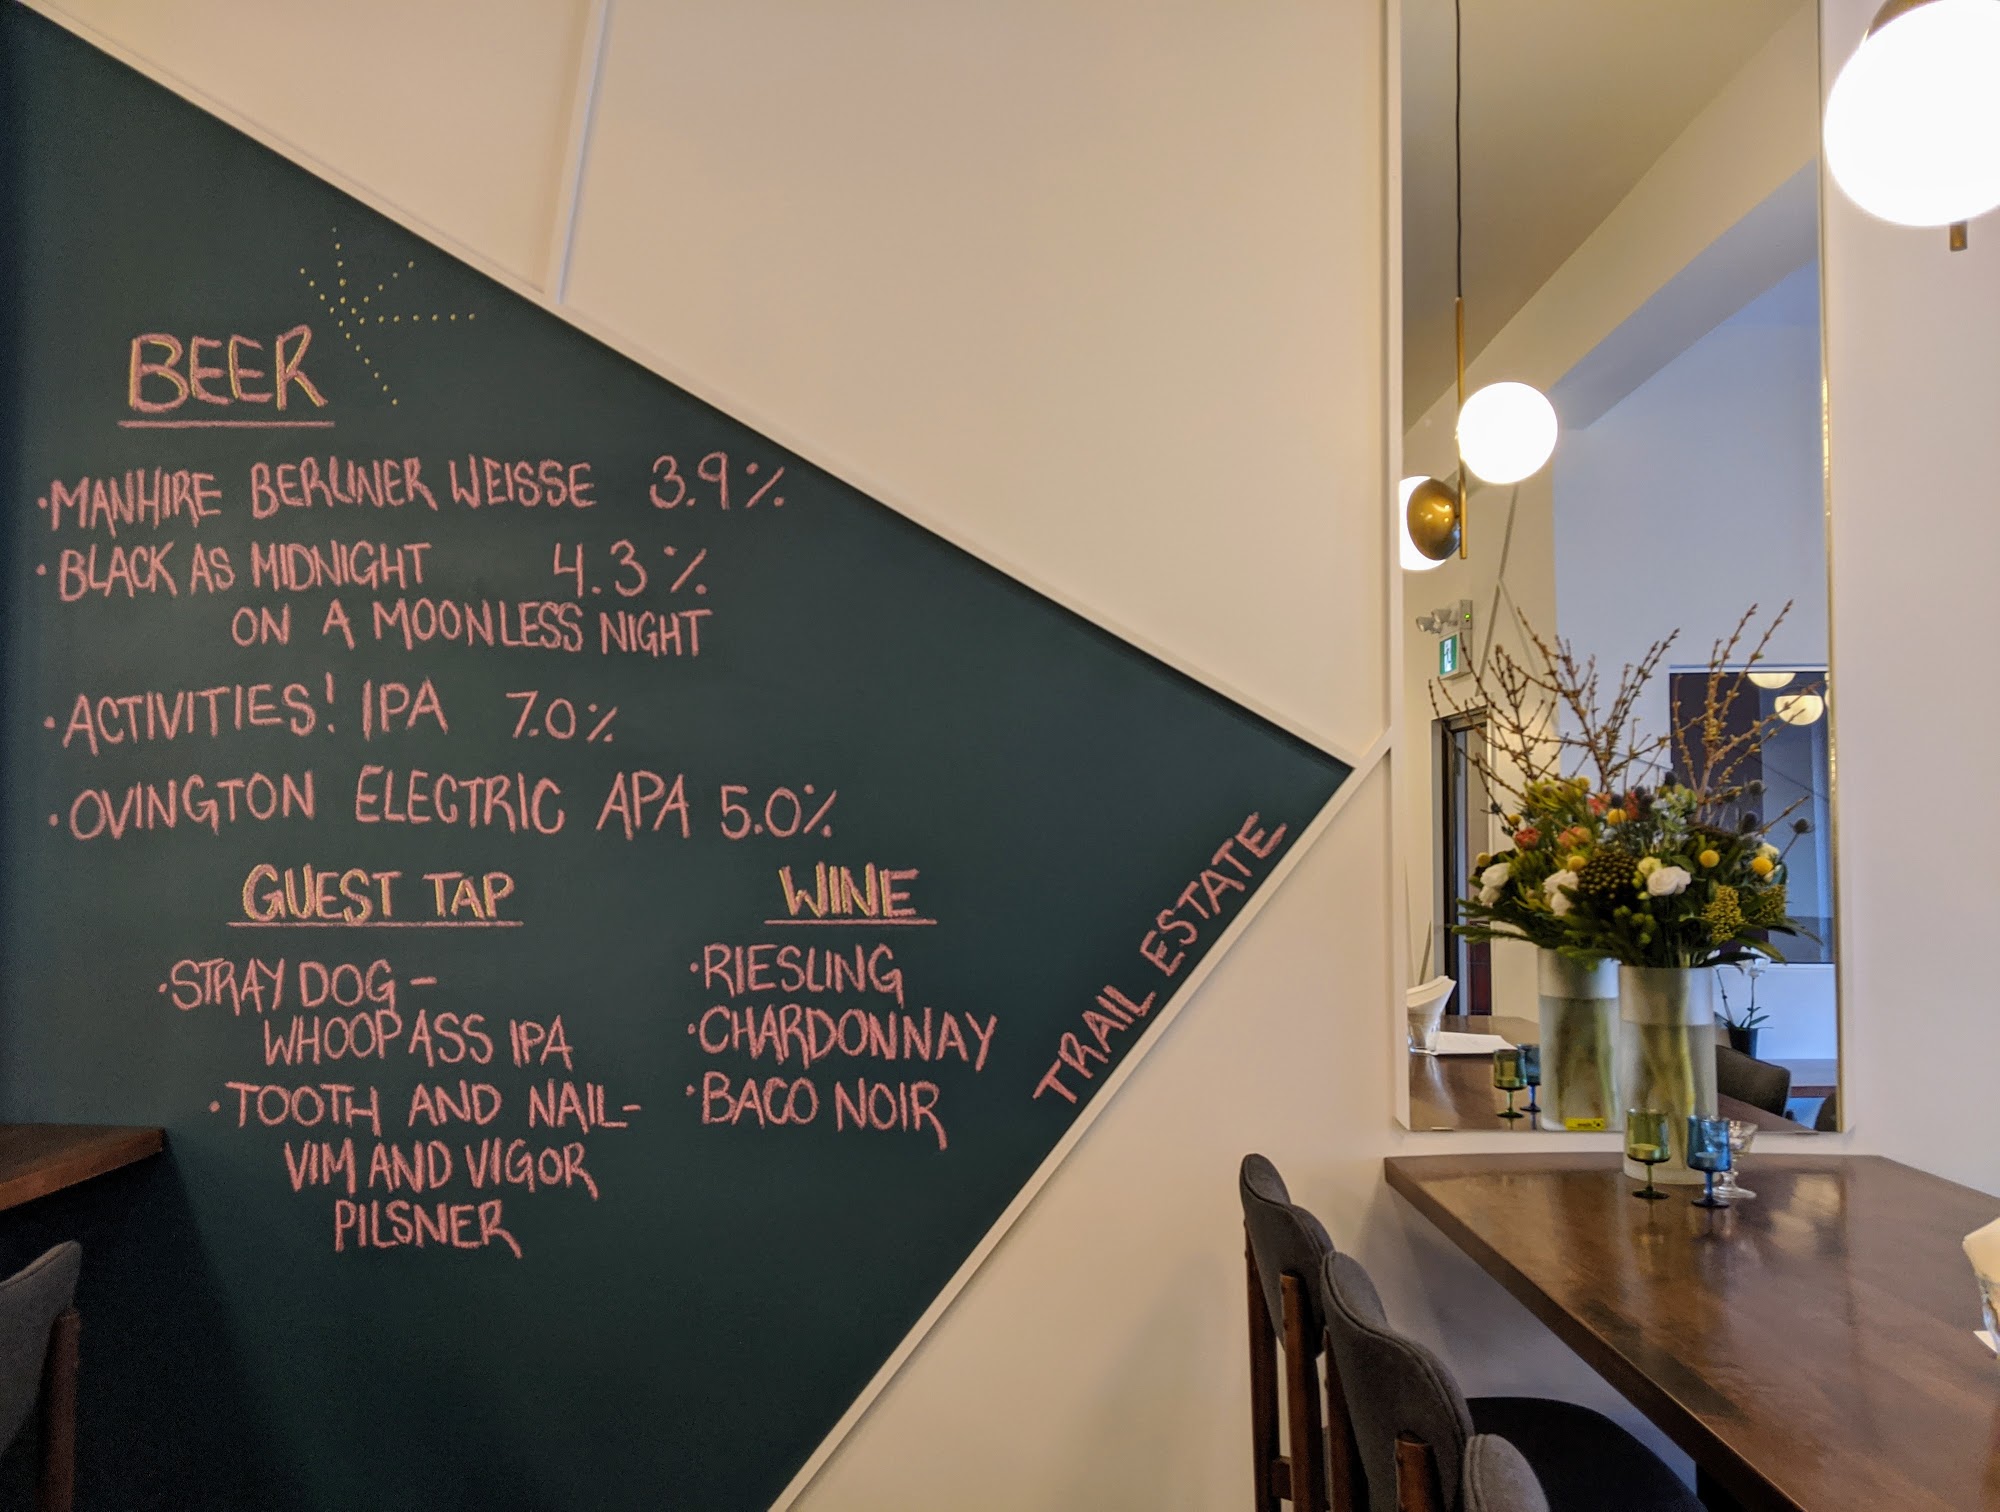 BEER
•MANHIRE BERLINER WEISSE 3.9%
•BLACK AS MIDNIGHT 4.3%
ON A MOONLESS NIGHT
•ACTIVITIES! IPA 7.0%
•OVINGTON ELECTRIC APA 5.0%
GUEST TAP
•STRAY DOG –
WHOOP ASS IPA
•TOOTH AND NAIL–
VIM AND VIGOR
PILSNER
WINE
•RIESLING
•CHARDONNAY
•BACO NOIR
TRAIL ESTATE